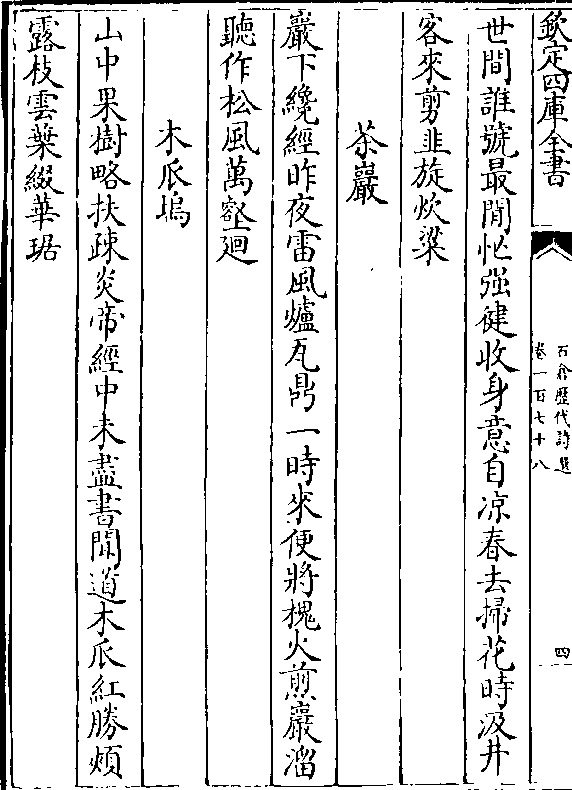 欽定四庫全書
石倉歷代詩選
卷一百七十八
四
世間誰號最閒忙强健收身意自凉春去掃花時汲井
客來剪韭旋炊粱
茶巖
巖下纔經昨夜雷風爐瓦鼎一時來便將槐火煎巖溜
聽作松風萬壑廻
木瓜塢
山中果樹略扶疎炎帝經中未盡書聞道木瓜紅勝頰
露枝雲葉綴華琚